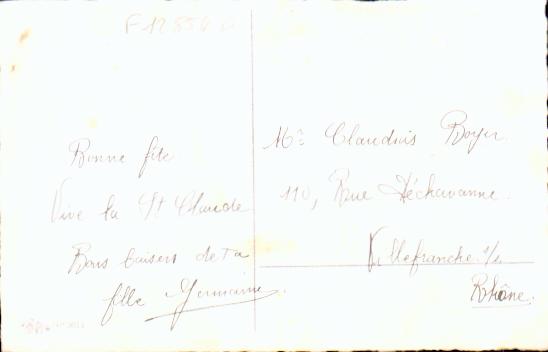 Bonne fête
Vive la St Claude
Bons baisers de Ta
fille Germaine.
Mr Claudius Boyer
110, Rue Déchavanne.
Villefranche s/s
Rhône.